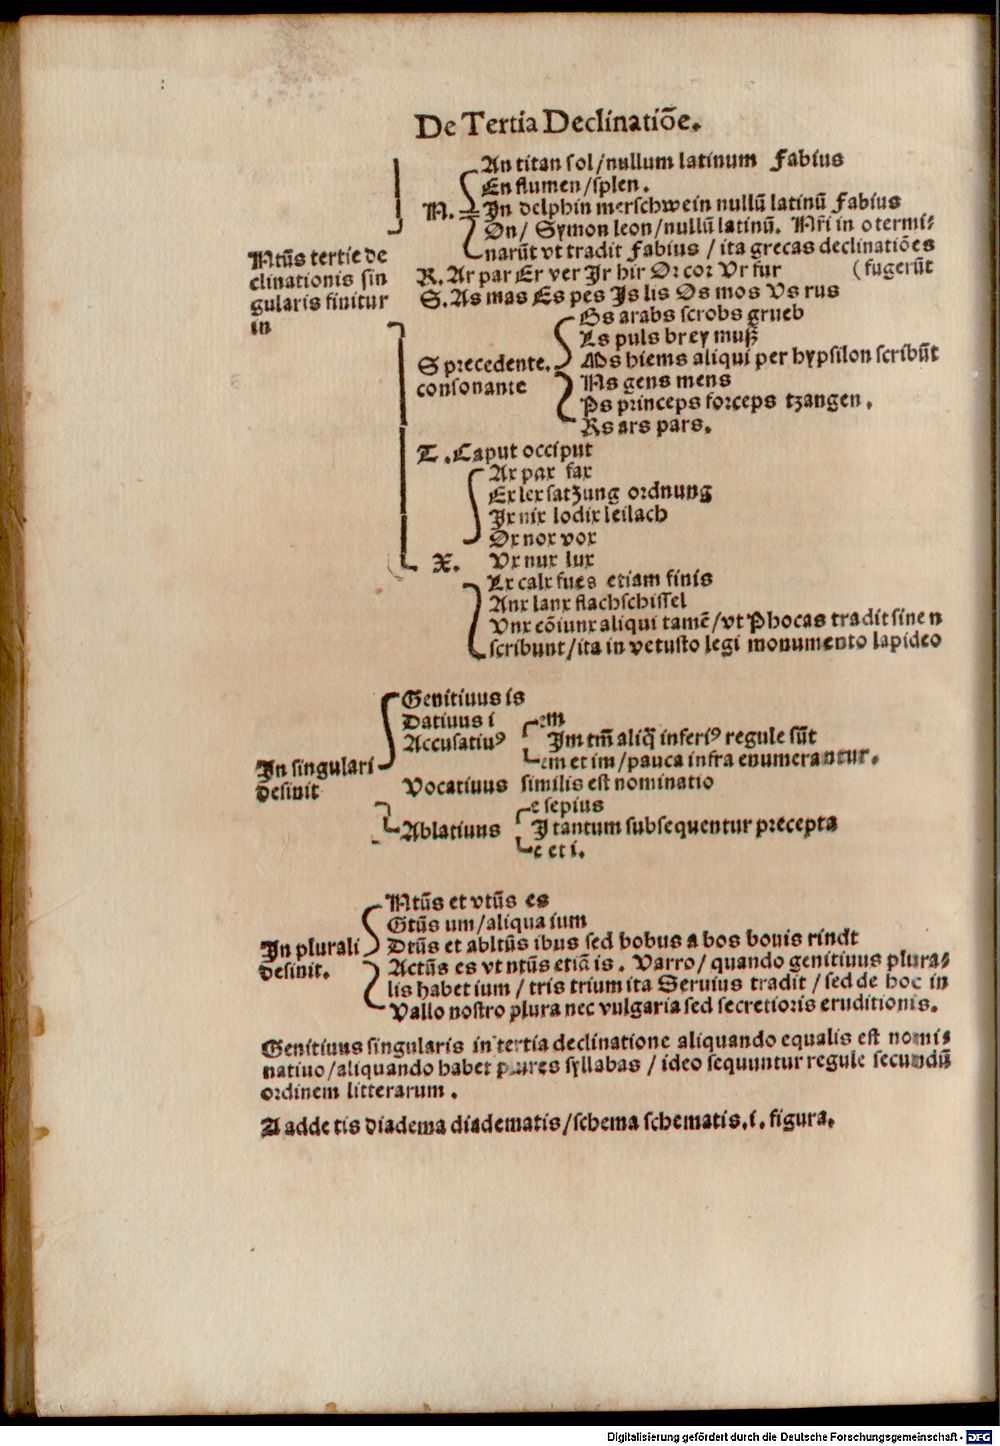 De Tertia Declinatiōe.
An titan sol/nullum latinum Fabius
En flumen/splen.
N. In delphin merschwein nullū latinū Fabius
On/ Symon leon/nullū latinū. Nr̄i in o termi-
narūt vt tradit Fabius / ita grecas declinatiōes
(fugerūt
Ntūs tertie de
clinationis sin
gularis finitur
in
R. Ar par Er ver Ir hir Or cor Ur fur
S. As mas Es pes Is lis Os mos Us rus
S precedente.
consonante
Bs arabs scrobs grueb
Ls puls brey muß
Ms hiems aliqui per hypsilon scribūt
Ns gens mens
Ps princeps forceps tzangen.
Rs ars pars.
T. Caput occiput
Ax pax fax
Ex lex satzung ordnung
Ix nix lodix leilach
Ox nox vox
X. Ux nux lux
Lx calx fues etiam finis
Anx lanx flachschissel
Unx cōiunx aliqui tamē/vt Phocas tradit sine n
scribunt/ita in vetusto legi monumento lapideo
In singulari
desinit
Genitiuus is
Datiuus i
Accusatiuꝰ
em
Im tm̄ aliq̄ inferiꝰ regule sūt
em et im/pauca infra enumerantur.
Vocatiuus similis est nominatio
Ablatiuus
e sepius
I tantum subsequentur precepta
e et i.
In plurali
desinit.
Ntūs et vtūs es
Gtūs um/aliqua ium
Dtūs et abltūs ibus sed bobus a bos bouis rindt
Actūs es vt ntūs etiā is. Varro/ quando genitiuus plura-
lis habet ium/ tris trium ita Seruius tradit/ sed de hoc in
Vallo nostro plura nec vulgaria sed secretioris eruditionis.
Genitiuus singularis in tertia declinatione aliquando equalis est nomi-
natiuo/aliquando habet plures syllabas / ideo sequuntur regule secundū
ordinem litterarum.
A adde tis diadema diadematis/schema schematis.i. figura.
Digitalisierung gefördert durch die Deutsche Forschungsgemeinschaft - DFG